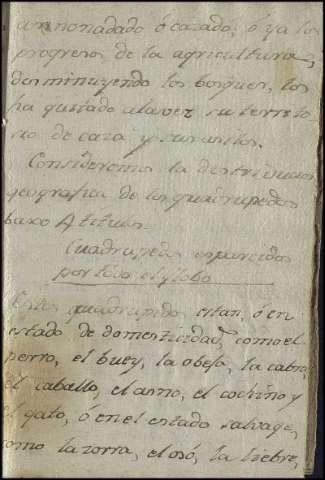 amonadado ó cazado; ó ya los
progresos de la agricultura,
disminuyendo los bosques, los
ha quitado alavez su territo
rio de caza y sus asilos.
Consideremos la destribucion
geografica de los quadrupedos
baxo 4 titulos.
Cuadrupedos esparcidos
por todo el globo
Estos quadrupedos estan, ó en
estado de domesticidad, como el
perro, el buey, la obeja, la cabra,
el caballo, el asno, el cochino y
el gato, ó en el estado salvage,
como la zorra, el osó, la liebre,